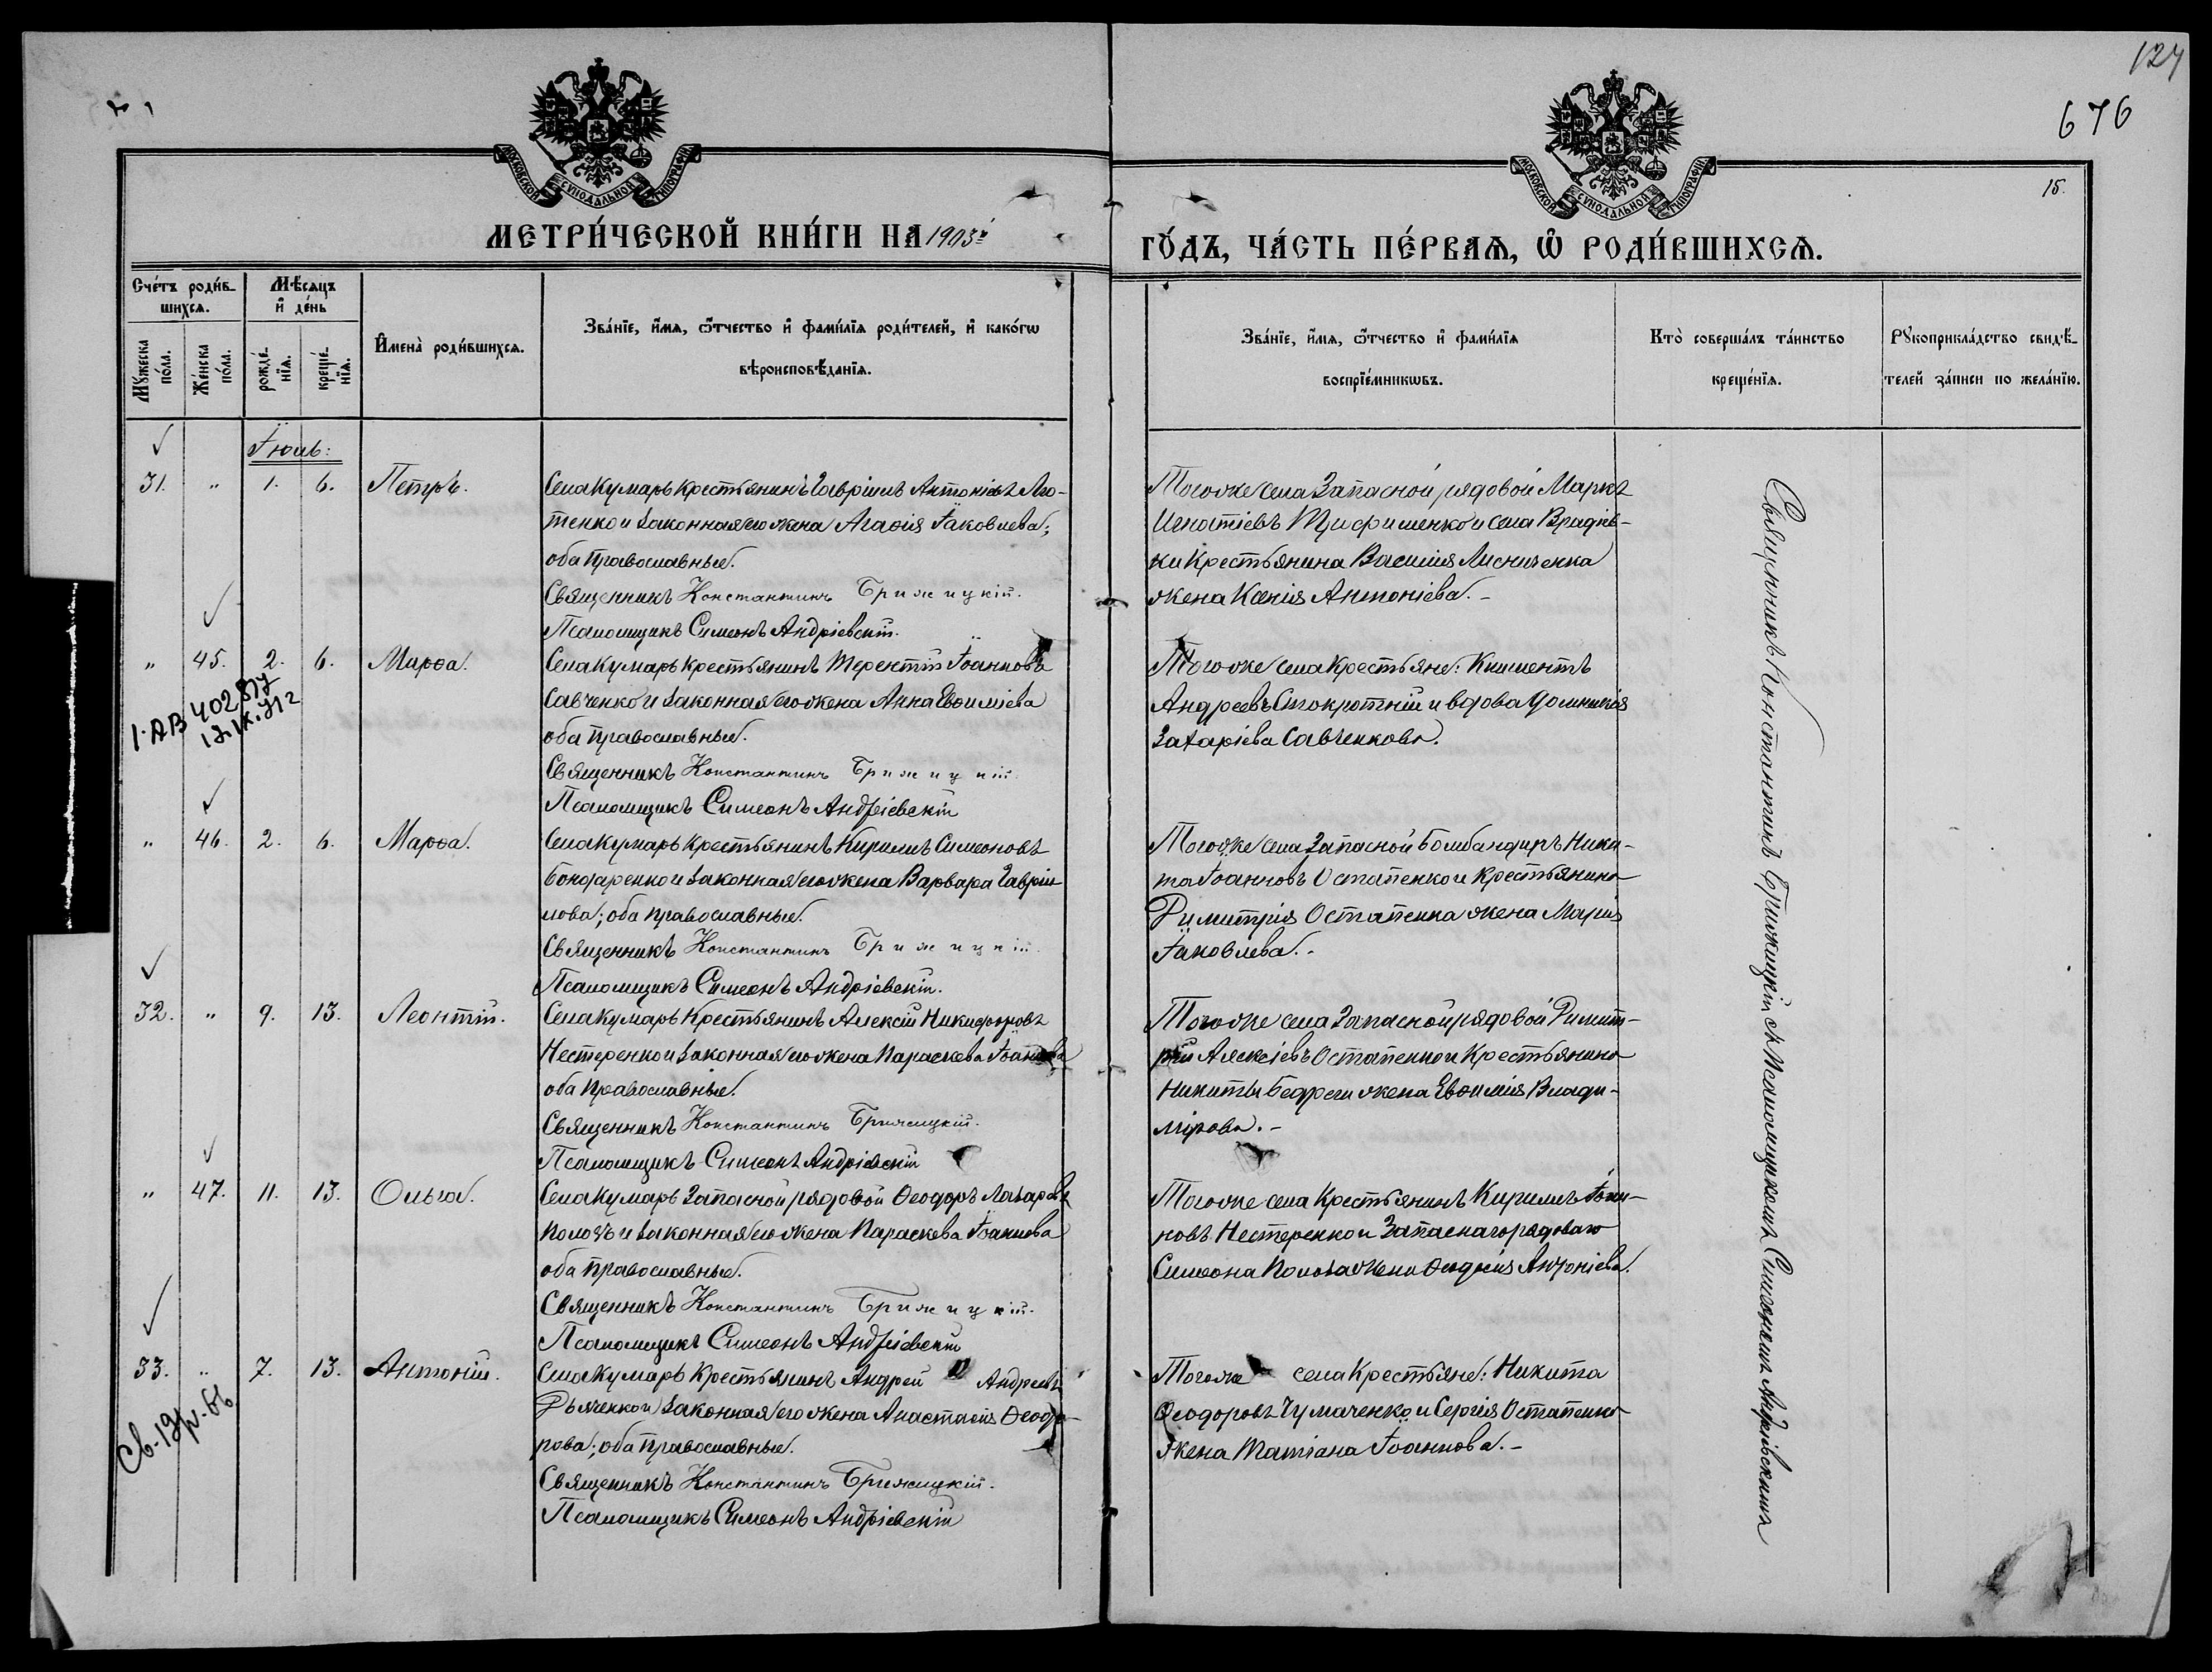 124
676
15.
МОСКОВСКОЙ СУНОДАЛЬНОЙ ТИПОГРАФІИ
МОСКОВСКОЙ СУНОДАЛЬНОЙ ТИПОГРАФІИ
МЕТРИ́ЧЕСКОЙ КНИ́ГИ НА 1903й
ГО́ДЪ, ЧА́СТЬ ПЕ́РВАѦ, Ѡ҆ РОДИ́ВШИХСѦ.
Сче́тъ роди́в-
шихсѧ.
Мꙋжеска
по́ла.
Же́нска
по́ла.
Мѣ́сѧцъ
и҆ де́нь
рожде́-
нїѧ.
креще́-
нїѧ.
И҆мена̀ роди́вшихсѧ.
Зва́нїе, и҆́мѧ, ѻ҆́тчество и҆ фами́лїѧ роди́телей, и҆ како́гѡ
вѣроисповѣ́данїѧ.
Зва́нїе, и҆́мѧ, ѻ҆́тчество и҆ фами́лїѧ
воспрїе́мникѡвъ.
Кто̀ соверша́лъ та́инство
креще́нїѧ.
Рꙋкоприкла́дство свидѣ́-
телей за́писи по жела́нїю.
Іюль:
31. " 1. 6. Петръ.
Села Кумарь крестьянинъ Гавріилъ Антоніевъ Ло-
тенко и законная его жена Агаѳія Іаковлева;
оба православные.
Священникъ Константинъ Брижицкій.
Псаломщикъ Симеонъ Андріевскій.
Того же села запасной рядовой Маркъ
Игнатіевъ и села Врадіев-
ки крестьянина Василія Лисниченка
жена Ксенія Антоніева.-
" 45. 2. 6. Марѳа.
Села Кумарь крестьянинъ Терентій Іоанновъ
Савченко и законная его жена Анна Евѳиміева
оба православные.
Священникъ Константинъ Брижицкій
Псаломщикъ Симеонъ Андріевскій
Того же села крестьяне: Климентъ
Андреевъ и вдова Домникія
Захаріева Савченкова.
1-АВ 402817
" 46. 2. 6. Марѳа.
Села Кумарь крестьянинъ Кириллъ Симеоновъ
Бондаренко и законная его жена Варвара Гаврiи-
лова; оба православные.
Священникъ Константинъ Брижицкій
Псаломщикъ Симеонъ Андріевскій.
Того же села запасной бомбандиръ Ники-
та Іоанновъ Остапенко и крестьянина
Димитрія Остапенка жена Марія
Іаковлева.-
32. " 9. 13. Леонтій.
Села Кумарь крестьянинъ Алексій Никифоровъ
Нестеренко и законная его жена Параскева Іоаннова
оба православные.
Священникъ Константинъ Брижицкій.
Псаломщикъ Симеонъ Андріевскій
Того же села запасной рядовой Димит-
рій Алексіевъ Остапенко и крестьянина
Никиты Бедреги жена Евѳимія Влади-
мірова.-
" 47. 11. 13. Ольга.
Села Кумарь запасной рядовой Ѳеодоръ Лазаревъ
Полозъ и законная его жена Параскева Іоаннова
оба православные.
Священникъ Константинъ Брижицкій.
Псаломщикъ Симеонъ Андріевскій
Того же села крестьянинъ Кириллъ Іоан-
новъ Нестеренко и запаснаго рядоваго
Симеона Полоза жена Ѳеодосія Антоніева.
33. " 7. 13. Антоній.
Села Кумарь крестьянинъ Андрей Андреевъ
Дьяченко и законная его жена Анастасія Ѳеодо-
рова; оба православные.
Священникъ Константинъ Брижицкій.
Псаломщикъ Симеонъ Андріевскій
Того же села крестьяне: Никита
Ѳеодоровъ Чумаченко и Сергія Остапенко
жена Татіана Іоаннова.-
Священникъ Константинъ Брижицкій съ псаломщикомъ Симеономъ Андріевскимъ